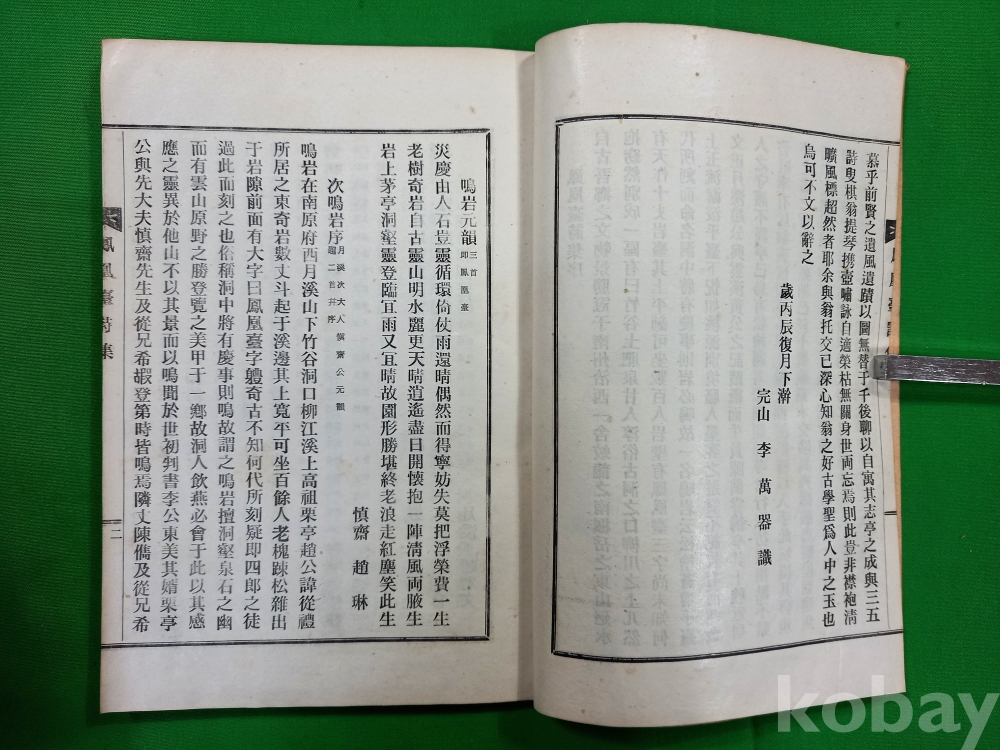 慕乎前賢之遺風遺蹟以圖無替于千後聊以自寓其志亭之成與三五
詩叟棋翁提琴携壺嘯詠自適榮枯無關身世両忘焉則此豈非襟袍淸
曠風標超然者耶余與翁托交已深心知翁之好古學聖爲人中之玉也
烏可不文以辭之
歲丙辰復月下澣
完山 李萬器 識
鳴岩元韻 三首
即鳳凰臺
災慶由人石豈靈循環倚仗雨還晴偶然而得寧妨失莫把浮榮費一生
老樹奇岩自古靈山明水麗更天晴逍遙盡日開懷抱一陣淸風両腋生
岩上茅亭洞壑靈登臨宜雨又宜晴故園形勝堪終老浪走紅塵笑此生
愼齋 趙琳
次鳴岩序
月溪次大人愼齋公元韻
題二首并序
鳴岩在南原府西月溪山下竹谷洞口柳江溪上高祖栗亭趙公諱從禮
所居之東奇岩數丈斗起于溪邊其上寬平可坐百餘人老槐踈松雜出
于岩隙前面有大字曰鳳凰臺字軆奇古不知何代所刻疑即四郎之徒
過此而刻之也俗稱洞中將有慶事則鳴故謂之鳴岩擅洞壑泉石之幽
而有雲山原野之勝登覽之美甲于一鄉故洞人飮燕必會于此以其感
應之靈異於他山不以其景而以鳴聞於世初判書李公東美其婿栗亭
公與先大夫愼齋先生及從兄希嘏登第時皆鳴焉隣丈陳儁及從兄希
鳳凰臺詩集
二
kobay